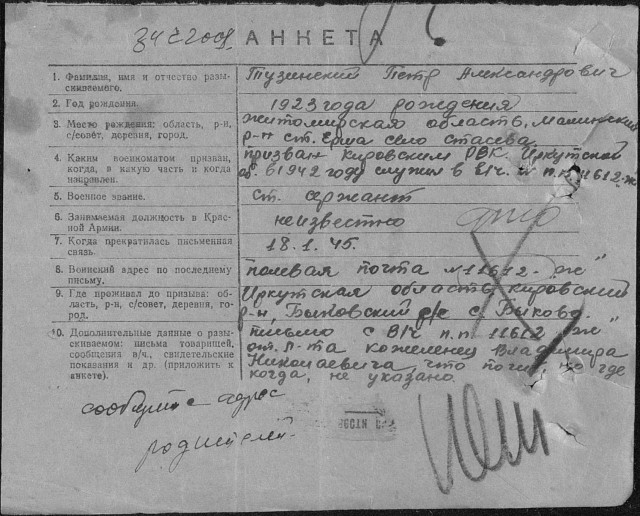 АНКЕТА
1. Фамилия, имя и отчество разыскиваемого.
Тузинский Петр Александрович
2. Год рождения.
1923 года рождения
3. Место рождения: область, р-н, с/совет, деревня, город.
житомирская область, Малинский
р-н ст. Ерша село Стасева
4. Каким военкоматом призван, когда, в какую часть и когда направлен.
призван Кировским РВК. Иркутской
об. в 1942 году служил в в/ч. п.п. 11612-ж
5. Военное звание.
ст. сержант
6. Занимаемая должность в Красной Армии.
неизвестно
7. Когда прекратилась письменная связь.
18.1.45.
8. Воинский адрес по последнему письму.
полевая почта № 11612 - "ж"
9. Где проживал до призыва: область, р-н, с/совет, деревня, город.
Иркутская область Кировский
р-н, Быковский с/с с. Быково.
10. Дополнительные данные о разыскиваемом: письма товарищей, сообщения в/ч., свидетельские показания и др. (приложить к анкете).
письмо с в/ч п.п. 11612 "ж"
от л-та Кожеленец Владимира
Николаевича, что погиб, но где
когда, не указано.
сообщите адрес
родителей.